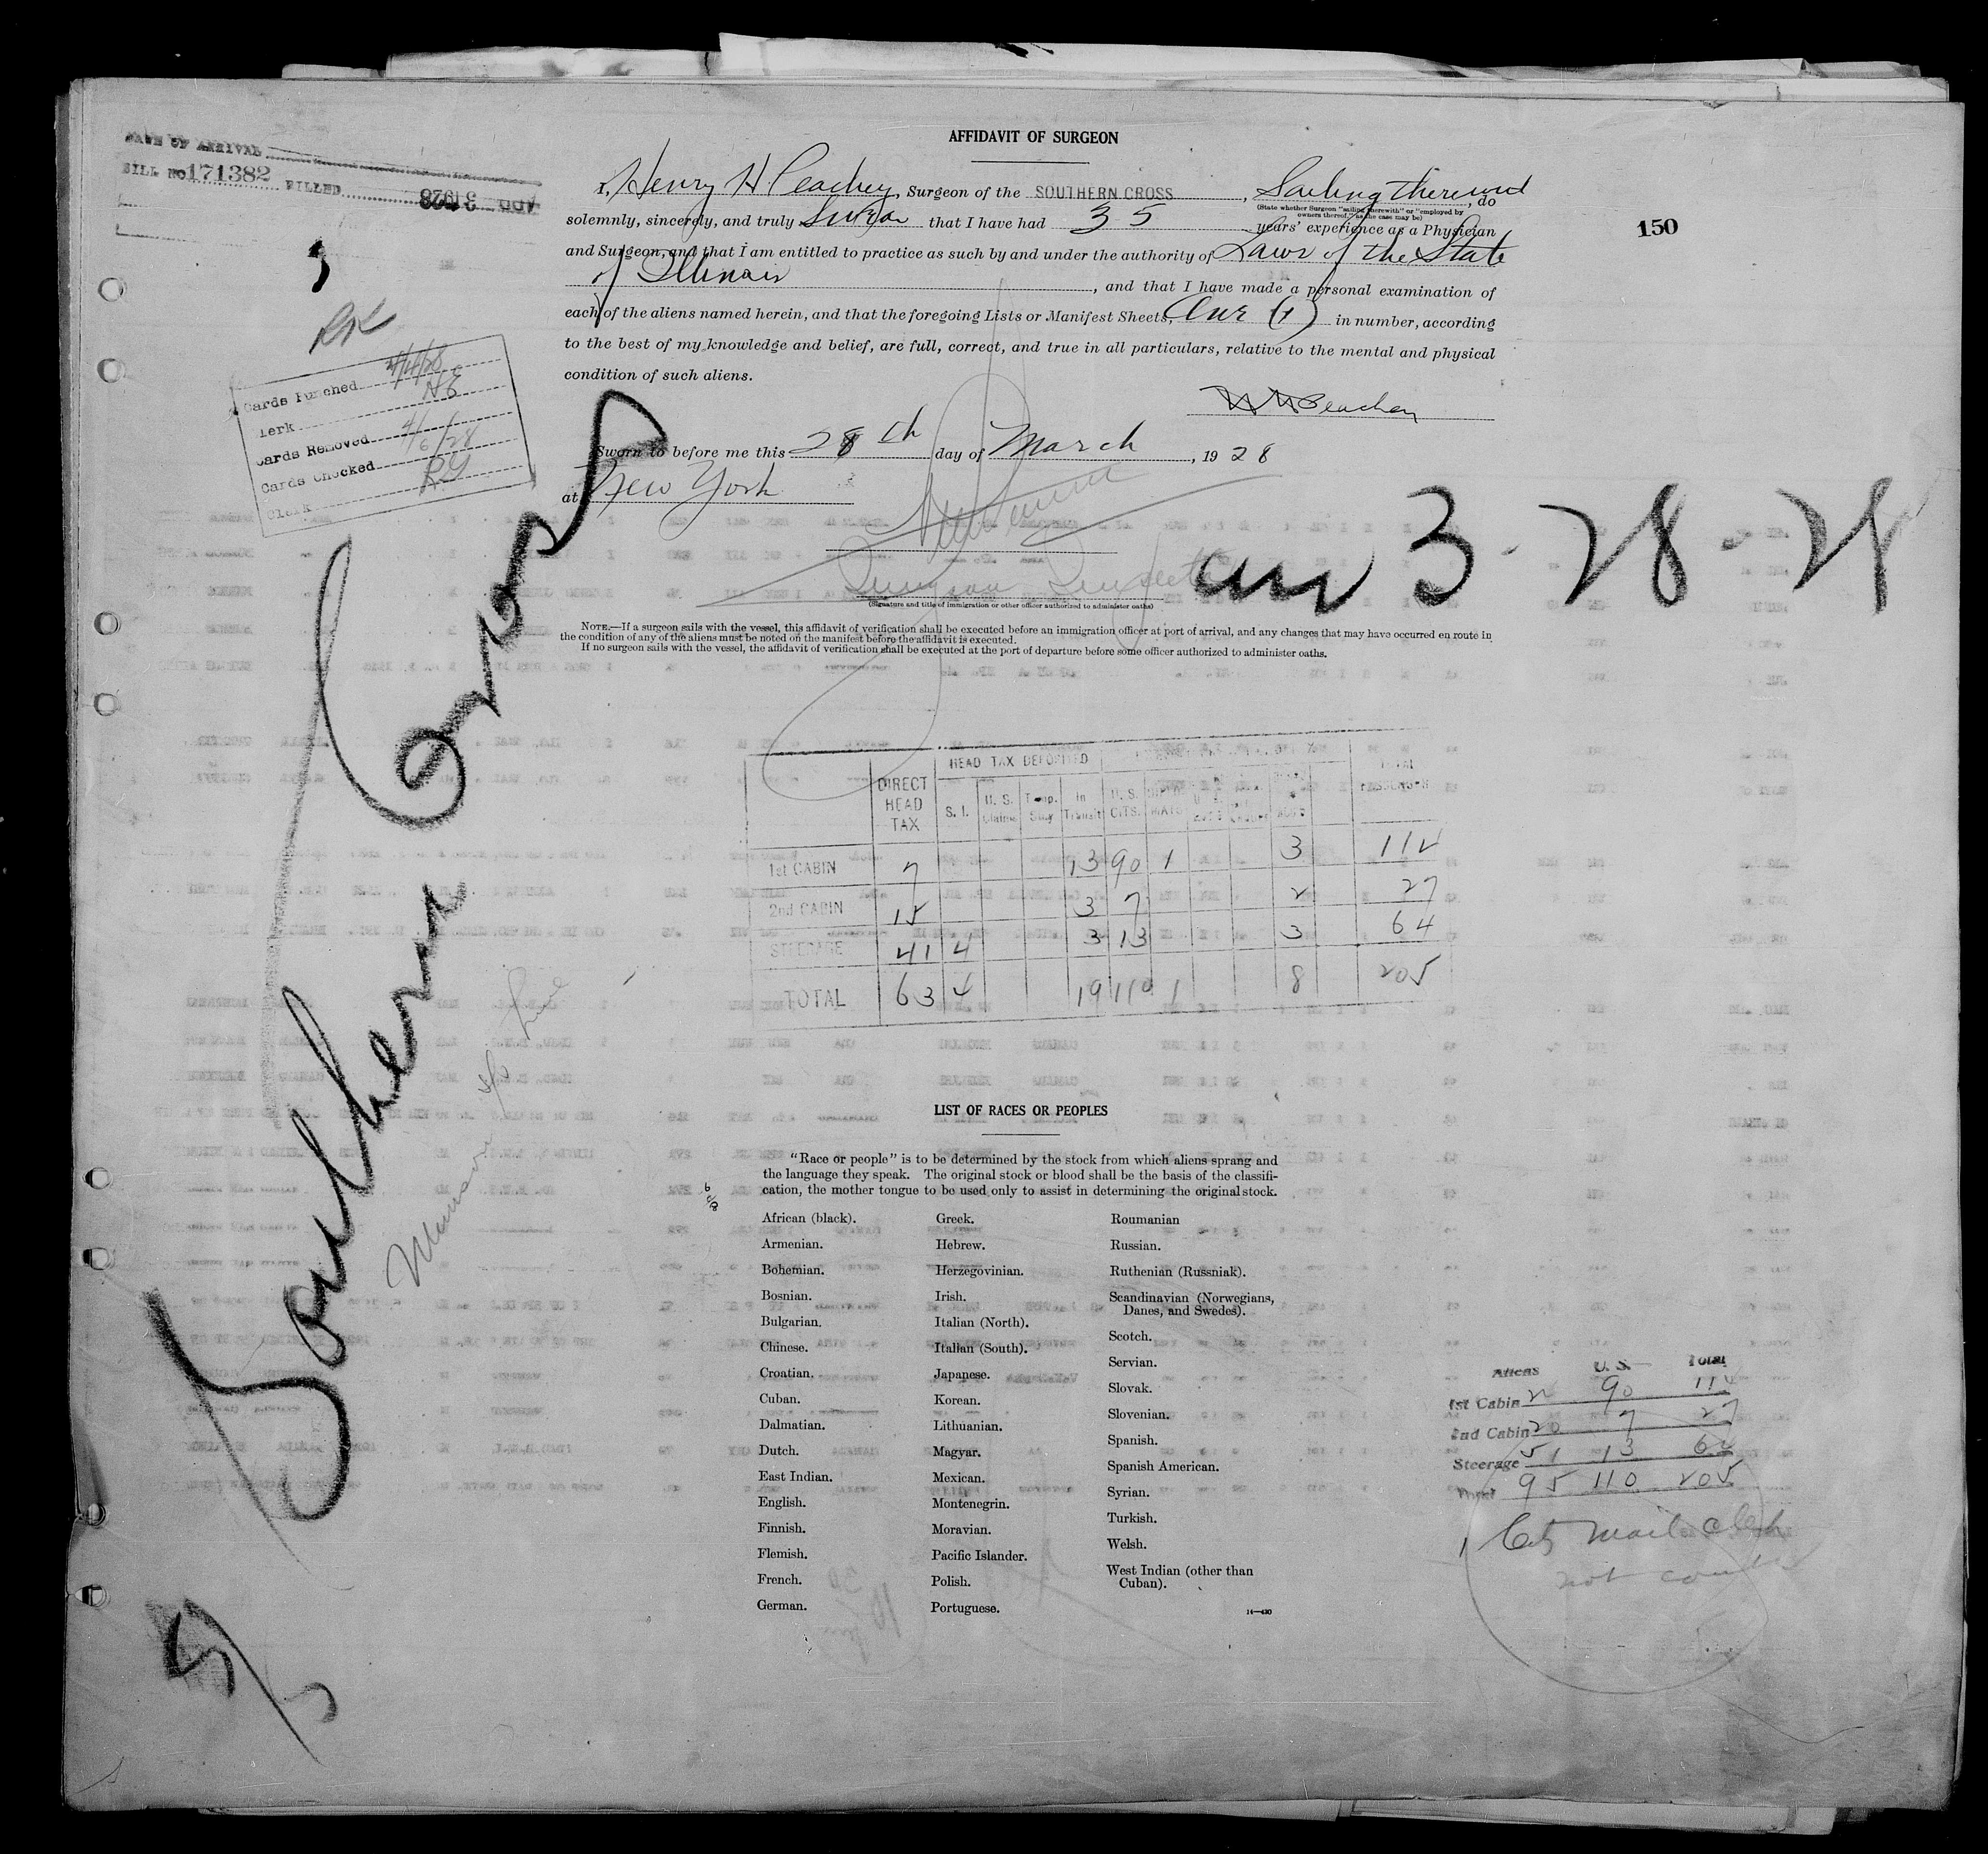 AFFIDAVIT OF SURGEON
DATE OF ARRIVAL
BILL NO 171382 FILLED APR 3 1928
150
I, Henry H Peachey, Surgeon of the SOUTHERN CROSS, Sailing therewith, do
(State whether Surgeon "sailing therewith" or "employed by
owners thereof," as the case may be)
solemnly, sincerely, and truly swear that I have had 35 years' experience as a Physician
and Surgeon, and that I am entitled to practice as such by and under the authority of Laws of the State
of Illinois, and that I have made a personal examination of
each of the aliens named herein, and that the foregoing Lists or Manifest Sheets, One (1) in number, according
to the best of my knowledge and belief, are full, correct, and true in all particulars, relative to the mental and physical
condition of such aliens.
HH Peachey
Sworn to before me this 28th day of March, 1928
at New York
(Signature and title of immigration or other officer authorized to administer oaths)
Cards Punched 4/4/28
Clerk HE
Cards Removed 4/6/28
Cards Checked RG
Clerk
Southern Cross
arr 3-28-28
NOTE.—If a surgeon sails with the vessel, this affidavit of verification shall be executed before an immigration officer at port of arrival, and any changes that may have occurred en route in
the condition of any of the aliens must be noted on the manifest before the affidavit is executed.
If no surgeon sails with the vessel, the affidavit of verification shall be executed at the port of departure before some officer authorized to administer oaths.
DIRECT HEAD TAX HEAD TAX DEPOSITED TOTAL
S. I. U. S. Claims Temp. Stay In Transit U. S. CITS.
1st CABIN 7 13 90 1 3 114
2nd CABIN 15 3 7 2 27
STEERAGE 41 4 3 13 3 64
TOTAL 63 4 19 110 1 8 205
Munson S/S Line
LIST OF RACES OR PEOPLES
"Race or people" is to be determined by the stock from which aliens sprang and
the language they speak. The original stock or blood shall be the basis of the classifi-
cation, the mother tongue to be used only to assist in determining the original stock.
African (black).
Armenian.
Bohemian.
Bosnian.
Bulgarian.
Chinese.
Croatian.
Cuban.
Dalmatian.
Dutch.
East Indian.
English.
Finnish.
Flemish.
French.
German.
Greek.
Hebrew.
Herzegovinian.
Irish.
Italian (North).
Italian (South).
Japanese.
Korean.
Lithuanian.
Magyar.
Mexican.
Montenegrin.
Moravian.
Pacific Islander.
Polish.
Portuguese.
Roumanian
Russian.
Ruthenian (Russniak).
Scandinavian (Norwegians,
Danes, and Swedes).
Scotch.
Servian.
Slovak.
Slovenian.
Spanish.
Spanish American.
Syrian.
Turkish.
Welsh.
West Indian (other than
Cuban).
14—430
Aliens U. S. Total
1st Cabin 24 90 114
2nd Cabin 20 7 27
Steerage 51 13 64
Total 95 110 205
1 Cit mail clerk
not counted